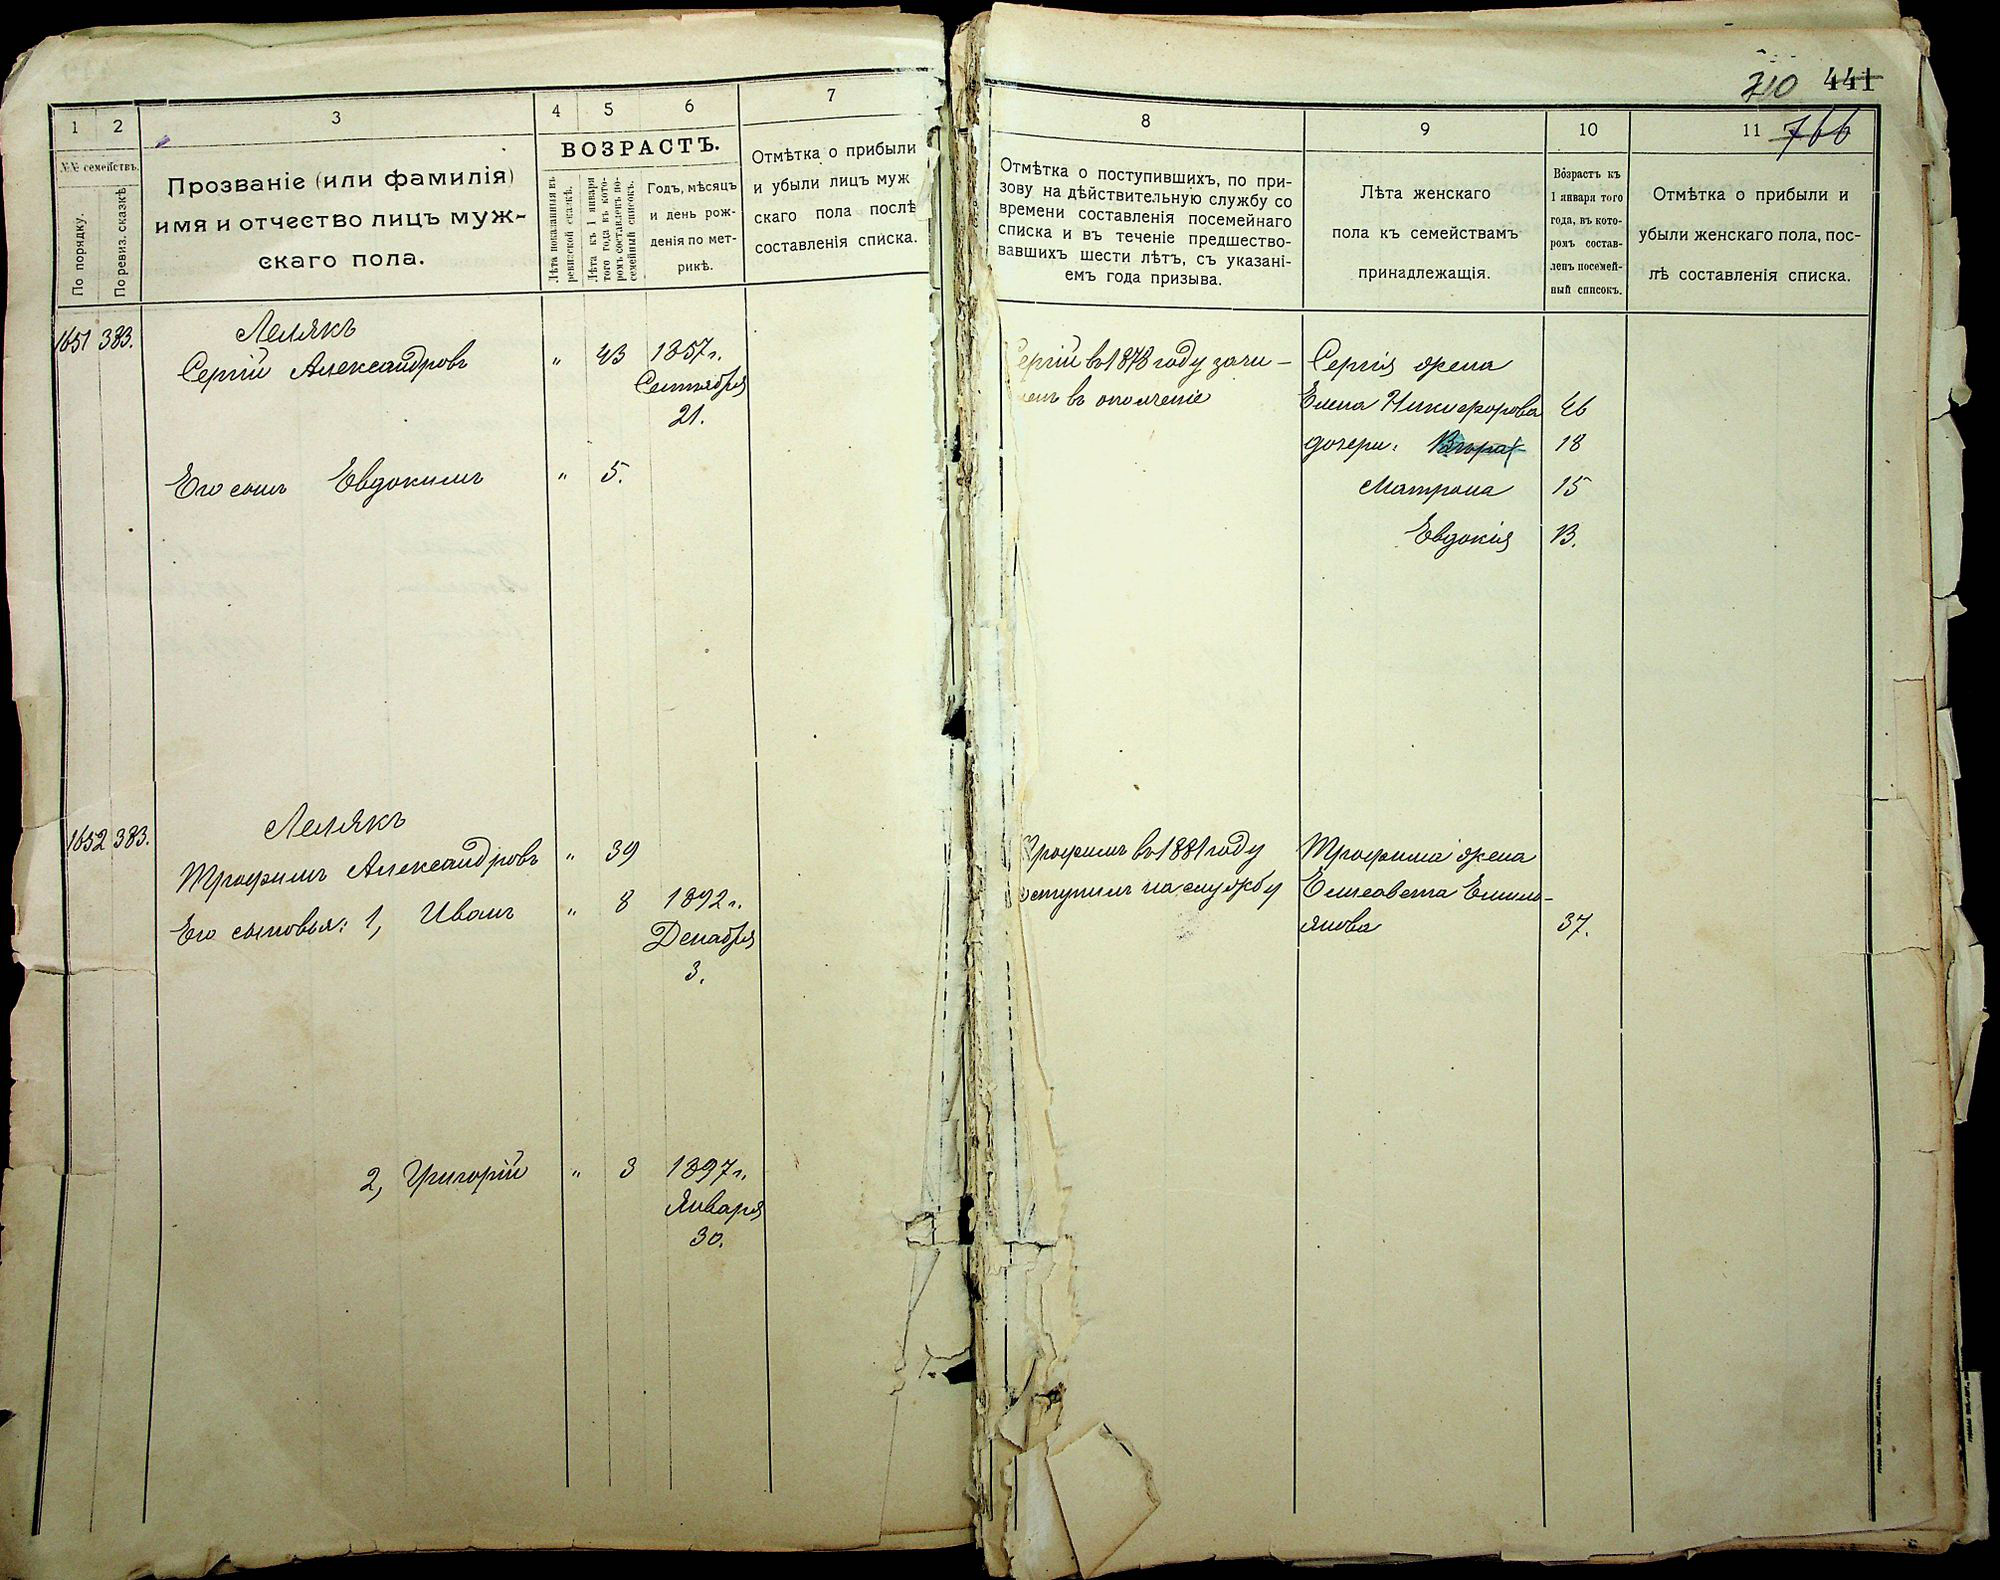 710 441
766
1 2 3 4 5 6 7
№№ семействъ.
По порядку.
По ревиз. сказкѣ
Прозваніе (или фамилія)
имя и отчество лицъ муж-
скаго пола.
ВОЗРАСТЪ.
Лѣта показанныя въ
ревизской сказкѣ.
Лѣта къ 1 января
того года въ кото-
ромъ составленъ по-
семейный списокъ.
Годъ, мѣсяцъ
и день рож-
денія по мет-
рикѣ.
Отмѣтка о прибыли
и убыли лицъ муж
скаго пола послѣ
составленія списка.
1651 383. Лелякъ
Сергій Александровъ " 43 1857 г.
Сентября
21.
Его сынъ Евдокимъ " 5.
1652 383. Лелякъ
Трофимъ Александровъ " 39
Его сыновья: 1, Иванъ " 8 1892 г.
Декабря
3.
2, Григорій " 3 1897 г.
Января
30.
8 9 10 11
Отмѣтка о поступившихъ, по при-
зову на дѣйствительную службу со
времени составленія посемейнаго
списка и въ теченіе предшество-
вавшихъ шести лѣтъ, съ указані-
емъ года призыва.
Лѣта женскаго
пола къ семействамъ
принадлежащія.
Возрастъ къ
1 января того
года, въ кото-
ромъ состав-
ленъ посемей-
ный списокъ.
Отмѣтка о прибыли и
убыли женскаго пола, пос-
лѣ составленія списка.
Сергій въ 1878 году зачи-
ленъ въ ополченіе
Сергія жена
Елена Никифорова 46
дочери: Вѣра 18
Матрона 15
Евдокія 13.
Трофимъ въ 1881 году
поступилъ на службу
Трофима жена
Елисавета Емель-
янова 37.